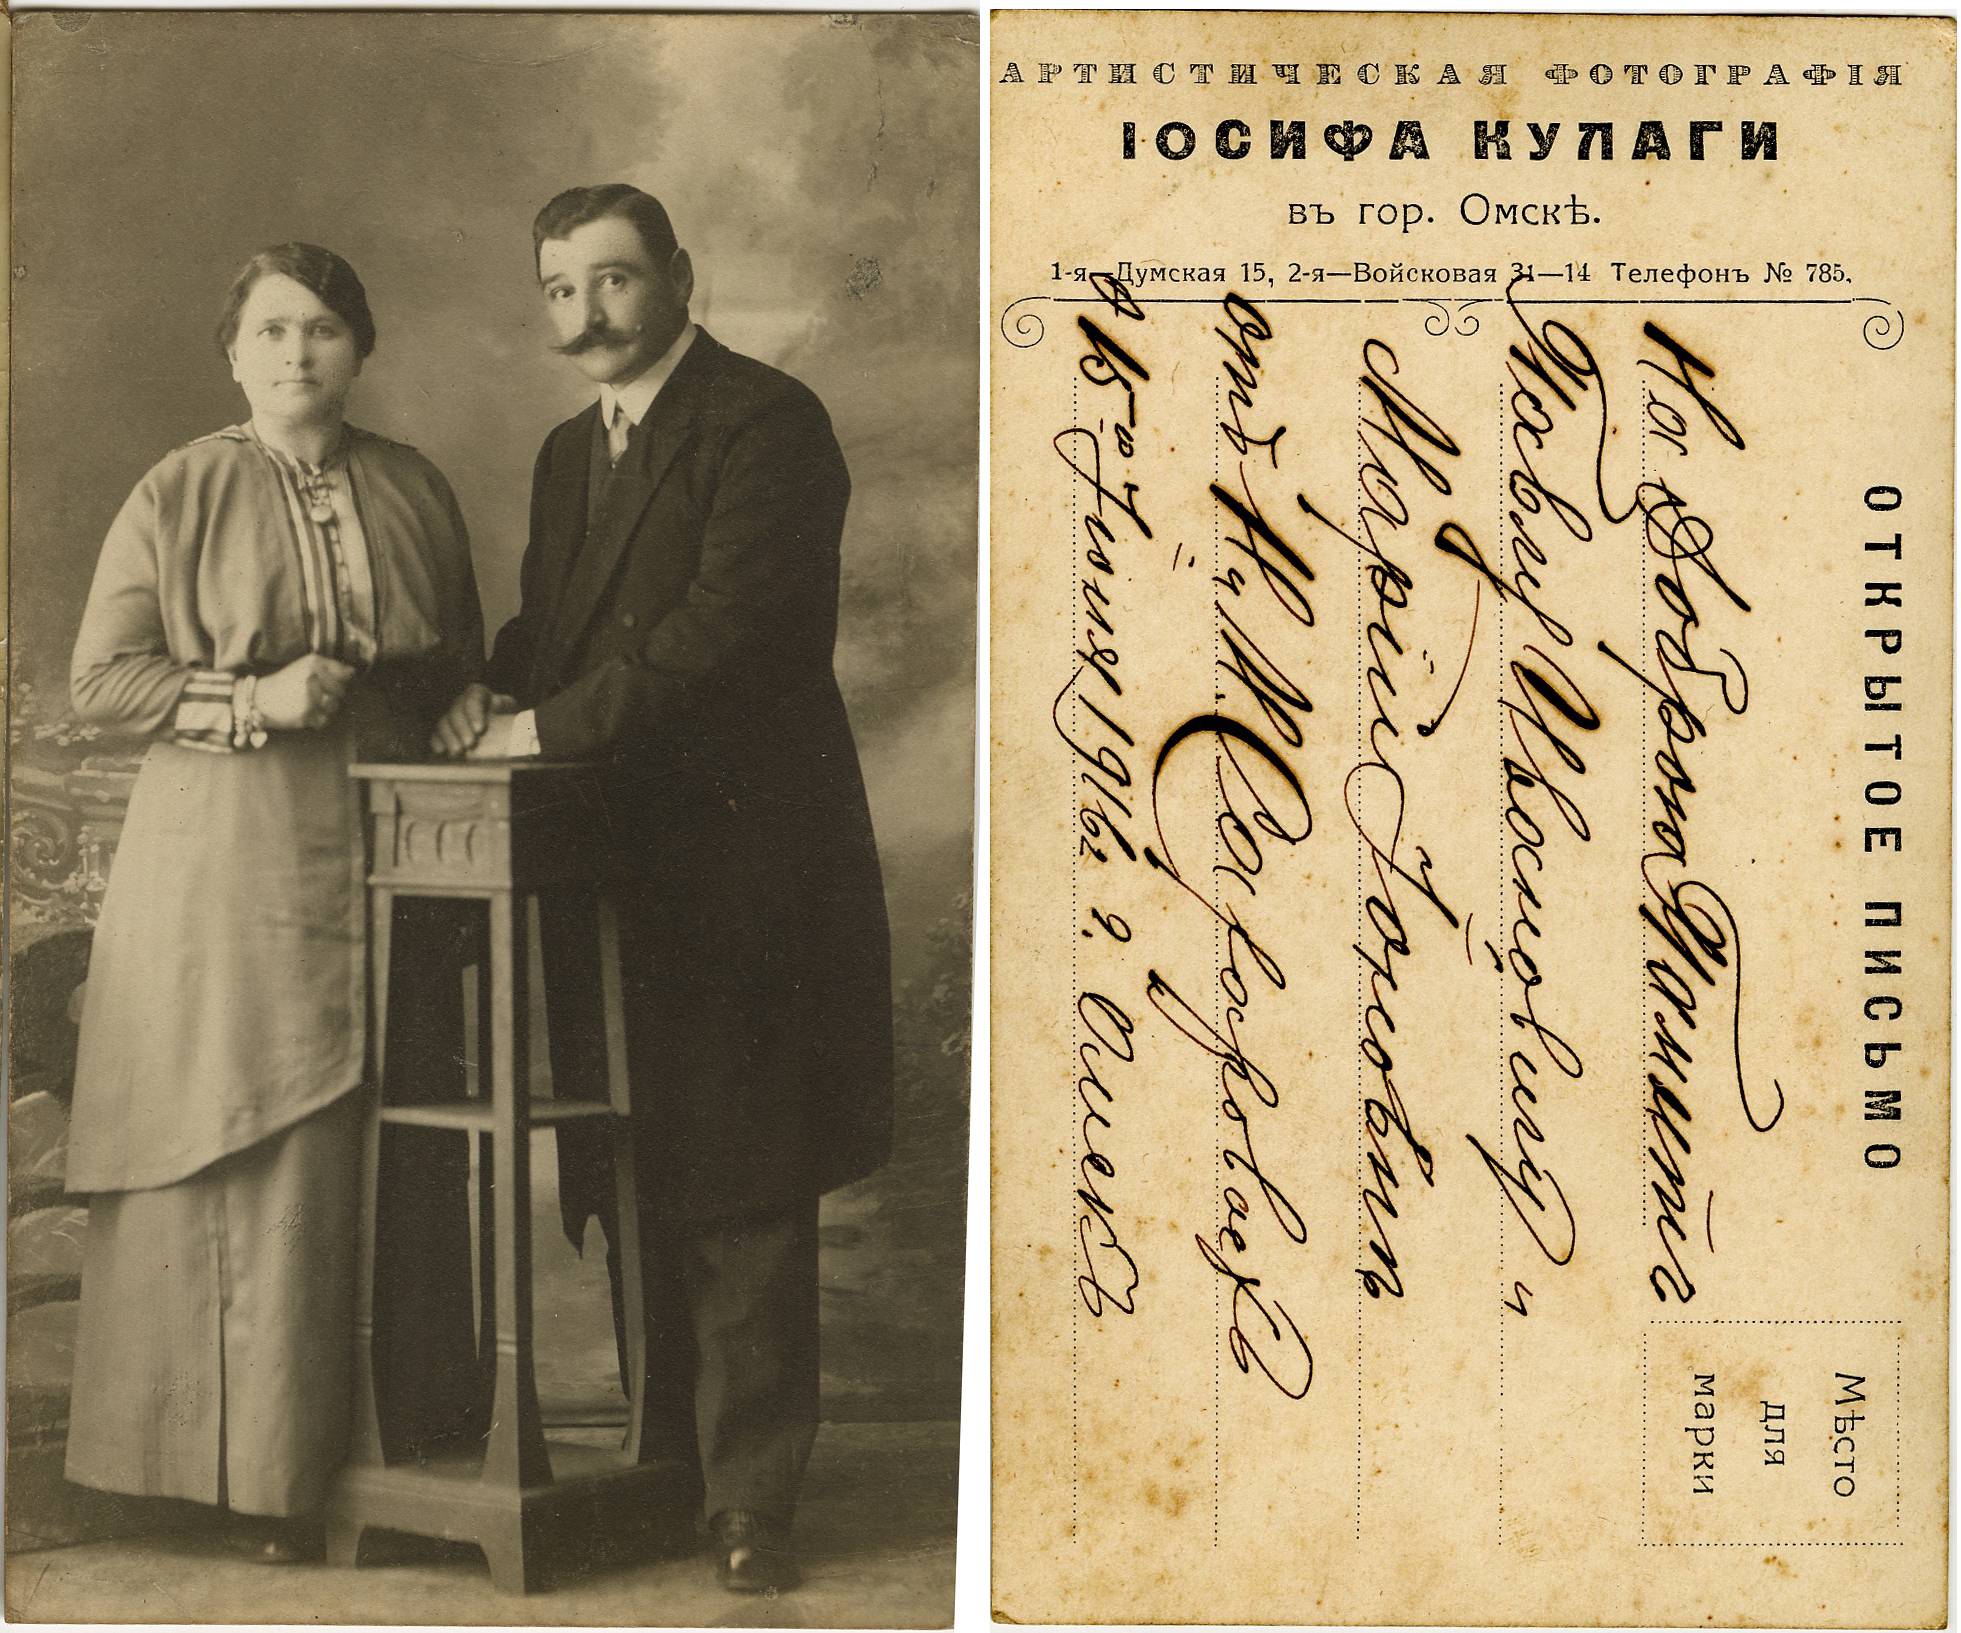 АРТИСТИЧЕСКАЯ ФОТОГРАФІЯ
ІОСИФА КУЛАГИ
въ гор. Омскѣ.
1-я—Думская 15, 2-я—Войсковая 31—14 Телефонъ № 785.
ОТКРЫТОЕ ПИСЬМО
Мѣсто
для
марки
На Добрую Память
Якову Ивановичу и
Марiи
отъ Н. и М.
15го Iюня 1916 г. Омскъ